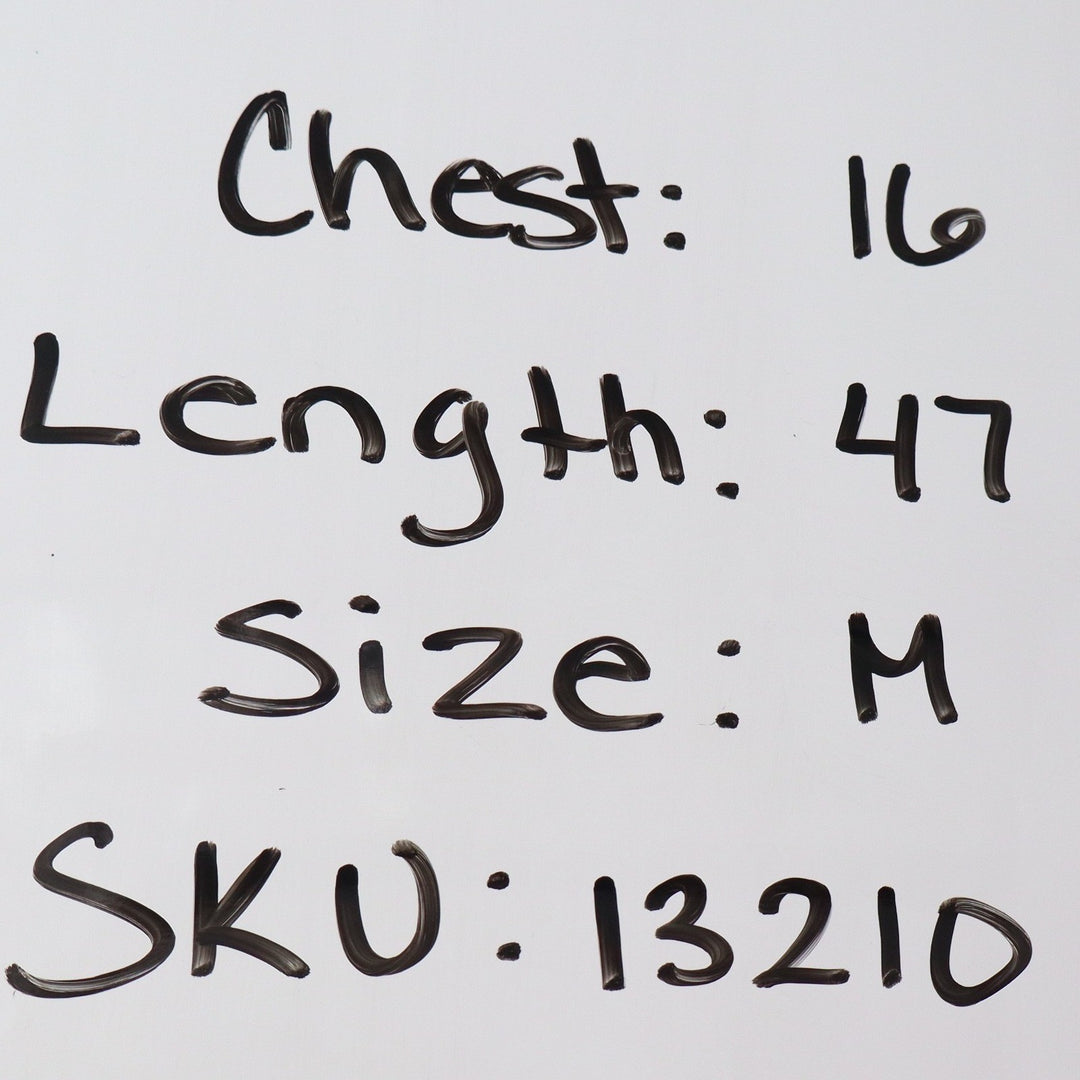 Chest: 16
Length: 47
Size: M
SKU: 13210